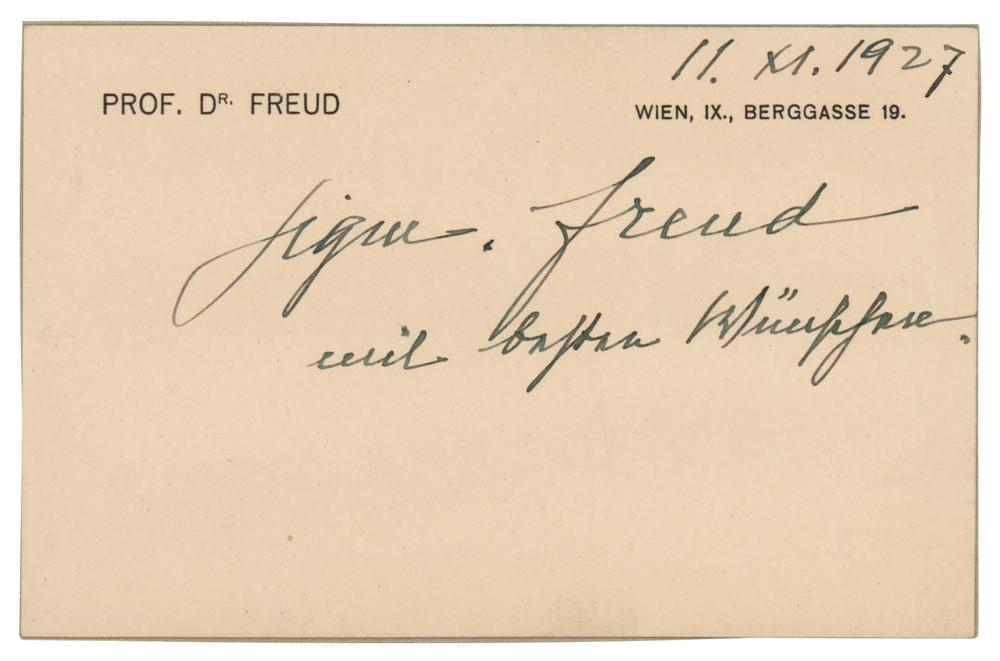 11. XI. 1927
PROF. DR. FREUD
WIEN, IX., BERGGASSE 19.
Sigm. Freud
mit besten Wünschen.